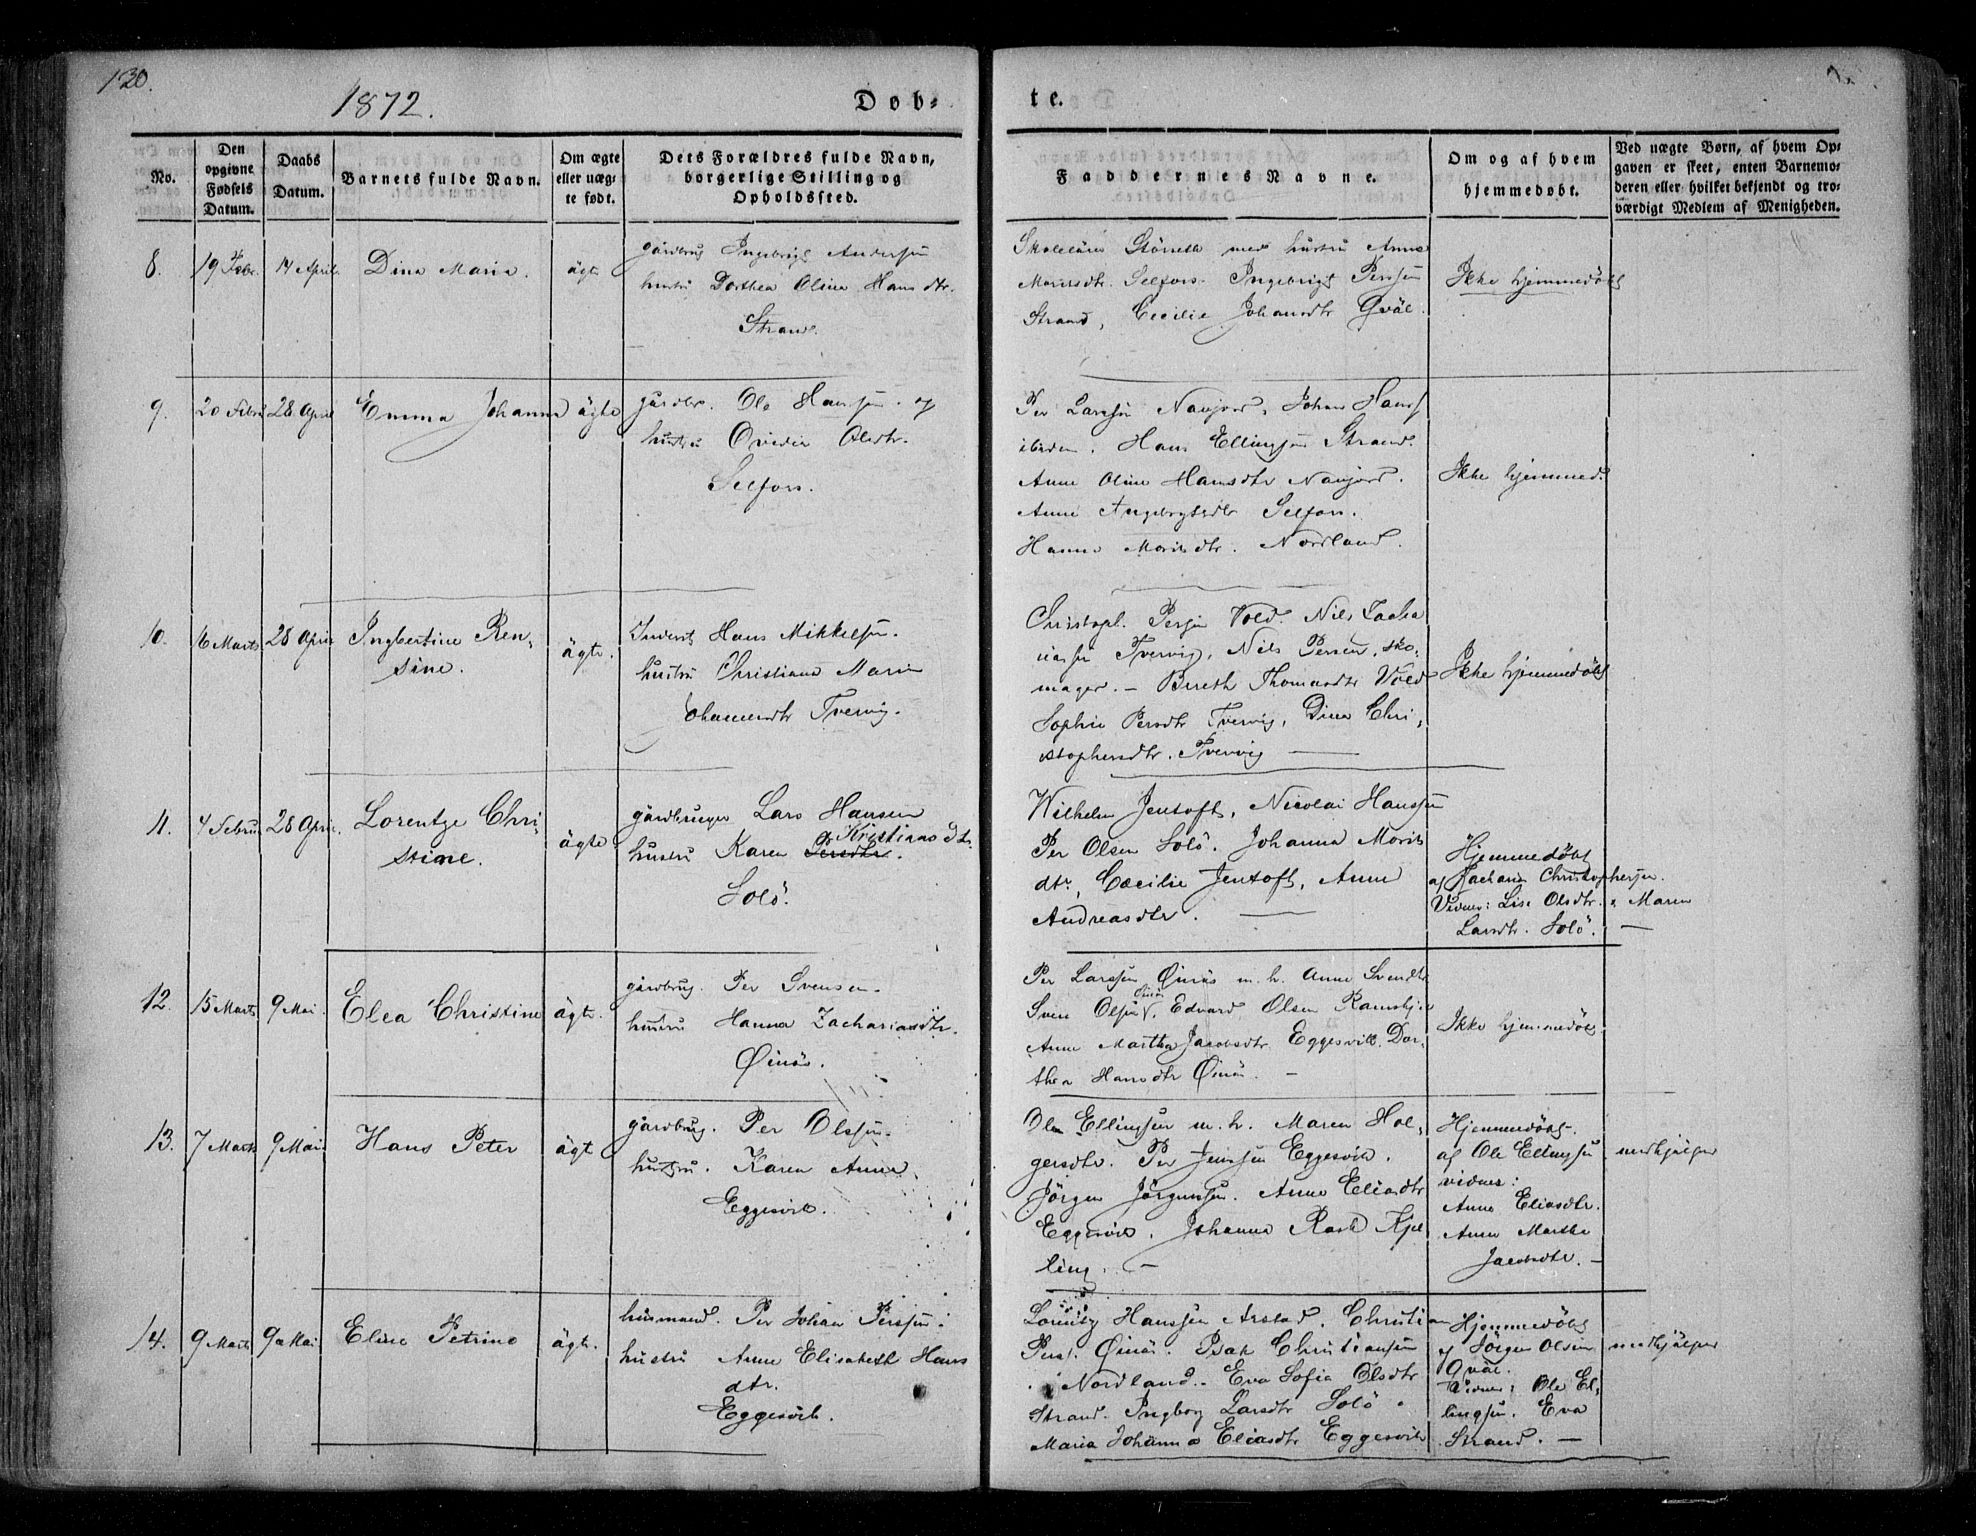 130.
1872.
Døb-
te.
No.
Den opgivne Fødsels Datum.
Daabs Datum.
Barnets fulde Navn.
Om ægte eller uægte født.
Dets Forældres fulde Navn, borgerlige Stilling og Opholdssted.
Faddernes Navne.
Om og af hvem hjemmedøbt.
Ved uægte Børn, af hvem Op-
gaven er skeet, enten Barnemo-
deren eller hvilket bekjendt og tro-
værdigt Medlem af Menigheden.
8. 19 Febr. 14 April. Dina Maria. ägte
gårdbrug Ingebrigt Andersen
hustru Dorthea Olina Hansdtr.
Strand.
Skolelärer Störseth med hustru Anne
Moritsdtr. Selfors. Ingebrigt Perssen
Strand, Cecilie Johansdtr Qväl.
Ikke hjemmedöbt
9. 20 Febru 28 April Emma Johanna ägte
gårdbr. Ole Hanssen. og
hustru Ovedia Olsdtr.
Selfors.
Per Larssen Naujord, Johan Hans
ibiden. Hans Ellingsen Strand.
Anne Oline Hansdtr Naujord.
Anne Ingebrigtsdtr Selfors.
Hanna Moritsdtr. Nordland.
Ikke hjemmed.
10. 16 Marts 28 April Ingbertine Ren-
sine. ägte.
Inderst Hans Mikkelsen.
hustru Christiane Marie
Johannesdtr Tvervig.
Christoph. Persen Vold. Nils Zacha
riassen Tvervig, Nils Persen, sko-
mager. - Bereth Thomasdtr Vold
Sophie Persdtr Tvervig, Dina Chri-
stophersdtr. Tvervig
Ikke hjemmedöbt
11. 4 Febru 28 April. Lorentze Chri-
stine. ägte
gårdbruger Lars Hansen
hustru Karen Persdtr. Kristiansdtr.
Solö.
Wilhelm Jentoft, Nicolai Hanssen
Per Olsen Solö. Johanna Morits
dtr, Cæcilie Jentoft, Anne
Andreasdtr.
Hjemmedöbt
af Zacharias Christophersen.
Vidner: Lise Olsdtr. & Maren
Larsdtr. Solö.
12. 15 Marts 9 Mai. Elea Christine ägte.
gårdbrug. Per Svensen.
hustru Hanna Zachariasdtr.
Öinäs.
Per Larssen Öinäs m. h. Anne Svendtr
Sven Olsen Öinäs, Edvard Olsen Ramskje
Anne Martha Jacobsdtr Eggesvik. Dor-
thea Hansdtr Öinäs. -
Ikke hjemmedöbt.
13. 7 Marts 9 Mai Hans Peter ägt
gårdbrug. Per Olssen.
hustru. Karen Anna
Eggesvik.
Ole Ellingsen m. h. Maren Hol-
gersdtr. Per Jenssen Eggesvik.
Jörgen Jörgensen. Anne Eliasdtr
Eggesvik. Johanna Rask Kjel
ling. -
Hjemmedöbt.
af Ole Ellingsen medhjälper
vidner:
Anne Eliasdtr.
Anne Martha
Jacobsdtr. -
14. 9 Marts 9 Mai Eline Petrine ägte.
husmand. Per Johan Perssen.
hustru Anne Elisabeth Hans
dtr.
Eggesvik.
Lorentz Hanssen Arstad. Christian
Pers. Öinäs. Isak Christiansen
Nordland. Eva Sofia Olsdtr
Strand. Ingborg Larsdtr Solö.
Maria Johanna Eliasdtr Eggesvik
Hjemmedöbt
af Jörgen Olsen medhjälper
Qväl.
Vidner: Ole El-
lingsen. Eva
Strand. -